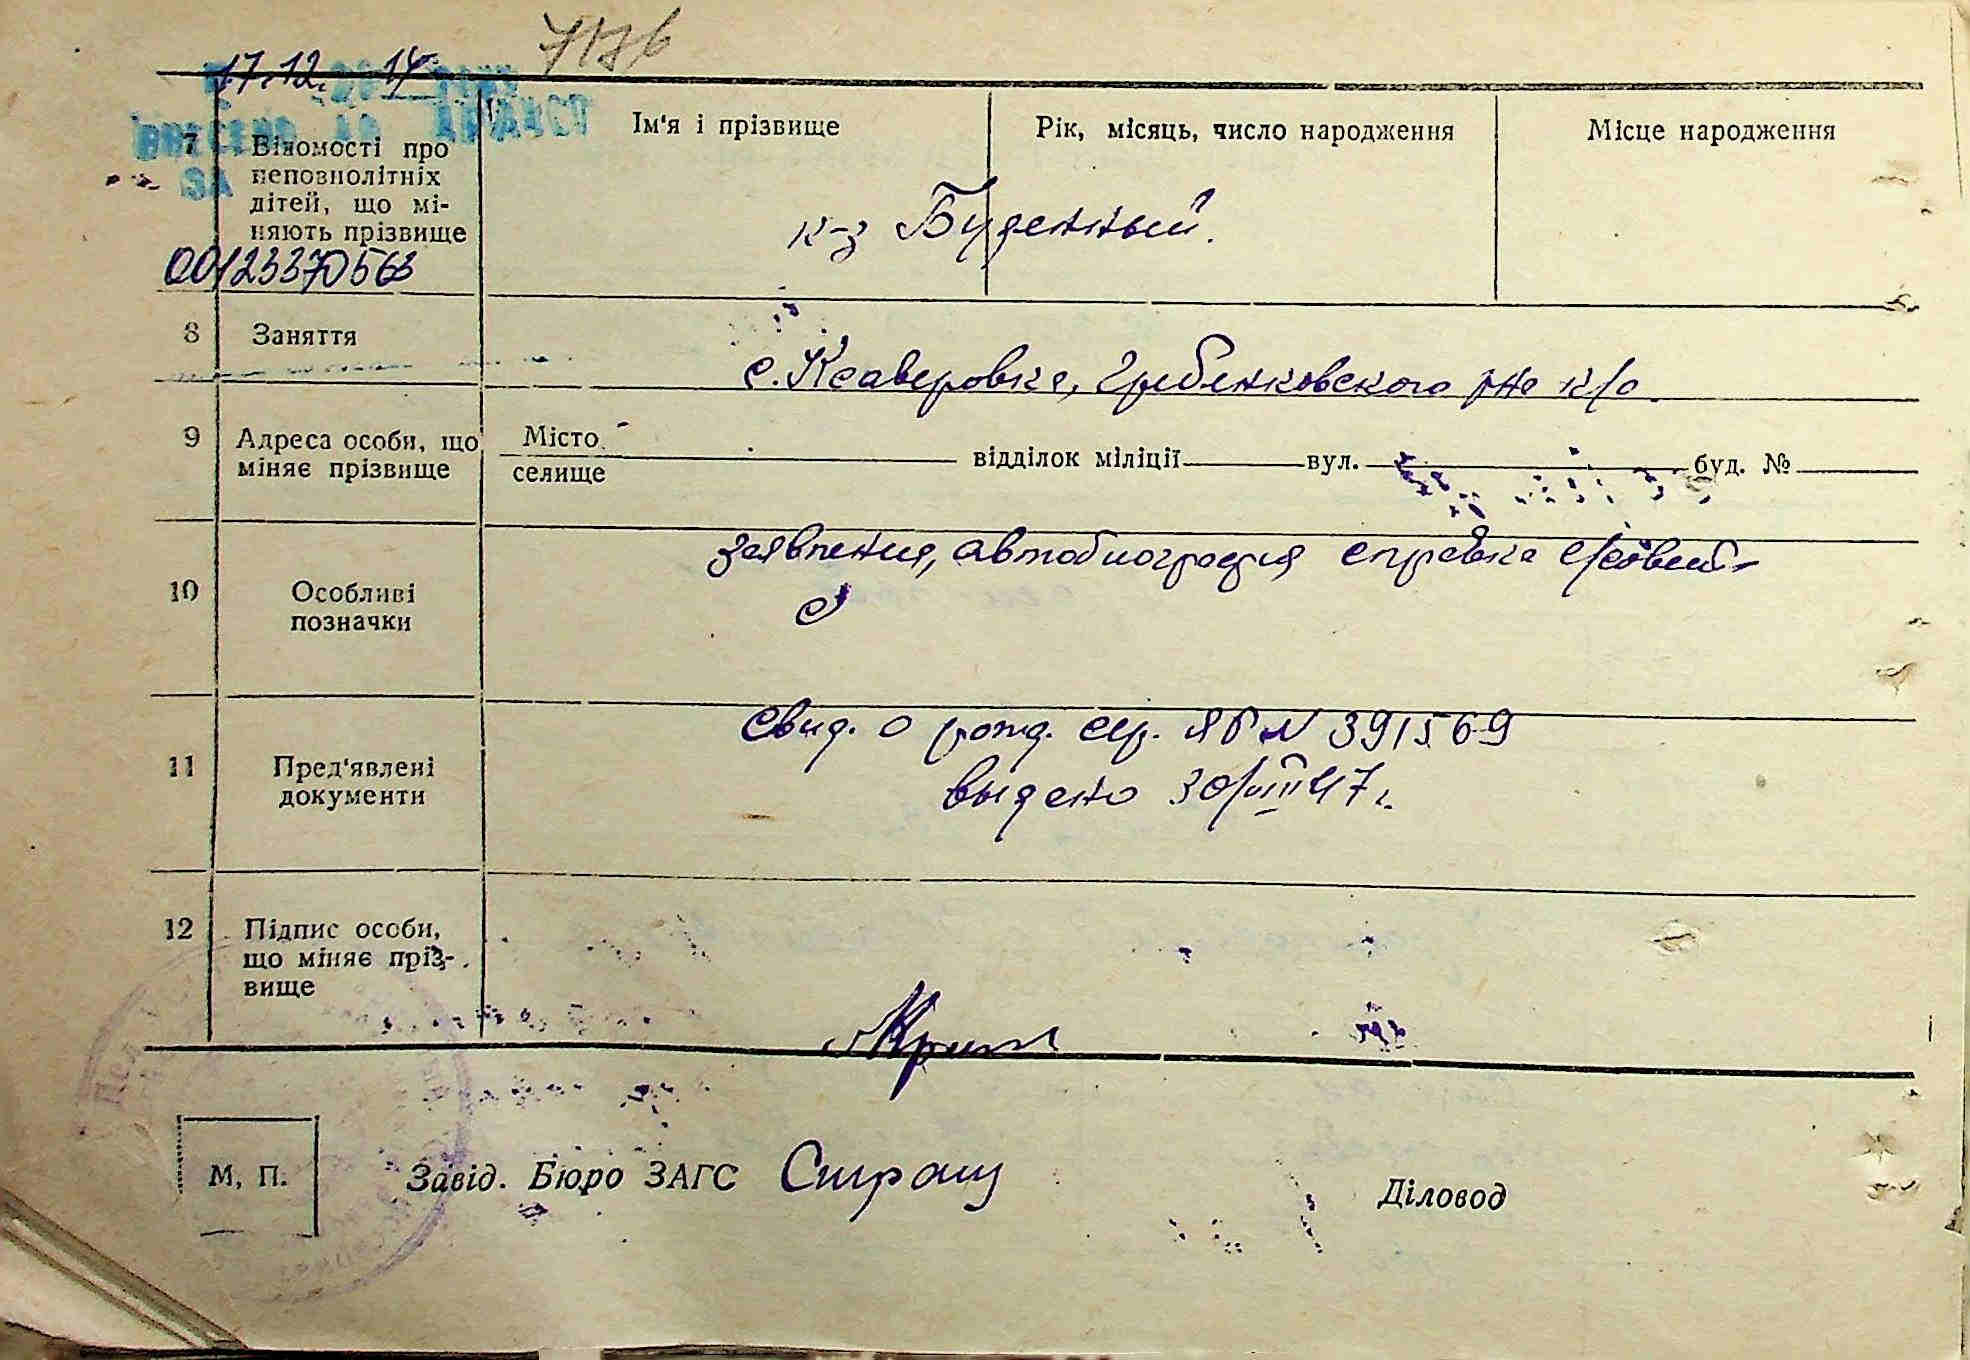 7176
17.12. 14
7
Відомості про
неповнолітніх
дітей, що мі-
няють прізвище
00123370563
Ім'я і прізвище
Рік, місяць, число народження
Місце народження
к-з Буденный.
8
Заняття
с. Ксаверовка, Гребенковского р-на к/о.
9
Адреса особи, що
міняє прізвище
Місто
селище
відділок міліції
вул.
буд. №
10
Особливі
позначки
заявления, автобиография справка
11
Пред'явлені
документи
Свид. о рожд. сер. ЯБ N 391569
выдано 30/VIII 47 г.
12
Підпис особи,
що міняє пріз-
вище
М. П.
Завід. Бюро ЗАГС
Діловод